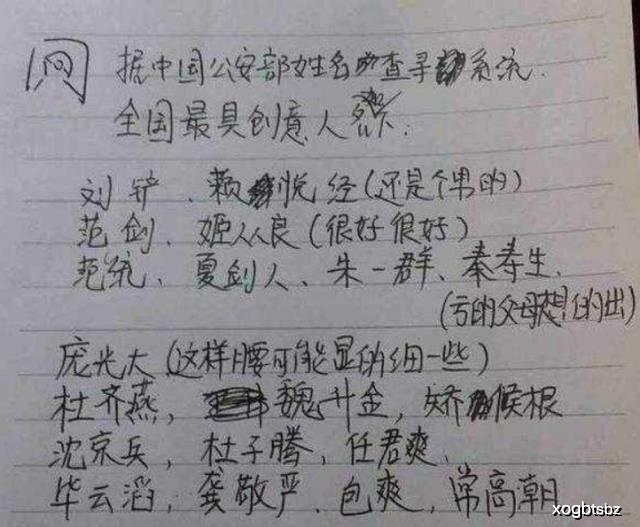 据中国公安部姓名查寻系统.
全国最具创意人名:
刘铲、赖悦经(还是个男的)
范剑、姬从良(很好很好)
范统、夏剑人、朱一群、秦寿生、
(亏的父母想的出)
庞光大(这样腰可能显的细一些)
杜齐燕,魏升金,矫候根
沈京兵,杜子腾,任君爽,
毕云滔,龚敬严,包爽,常高朝
xogbtsbz